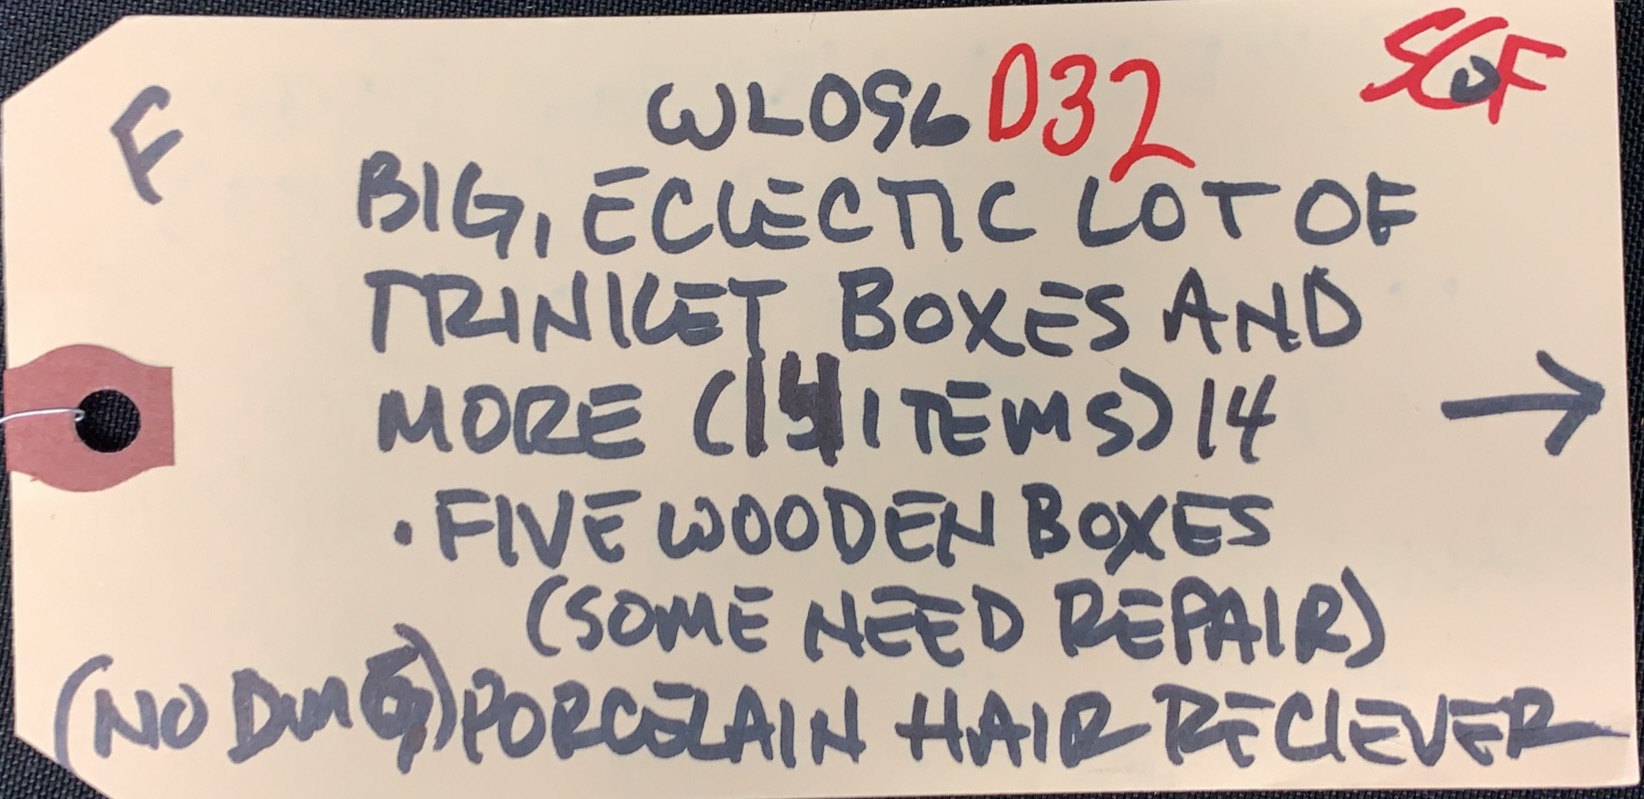 F
WL096 D32
BIG, ECLECTIC LOT OF
TRINKET BOXES AND
MORE (14 ITEMS) 14
• FIVE WOODEN BOXES
(SOME NEED REPAIR)
(NO DMG) PORCELAIN HAIR RECIEVER
→